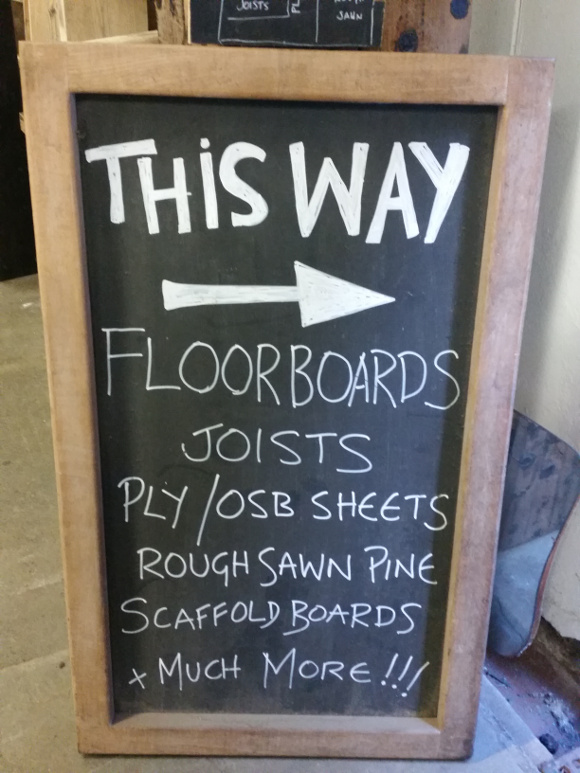 JOISTS
SAWN
THIS WAY
FLOORBOARDS
JOISTS
PLY/OSB SHEETS
ROUGH SAWN PINE
SCAFFOLD BOARDS
+ MUCH MORE!!!